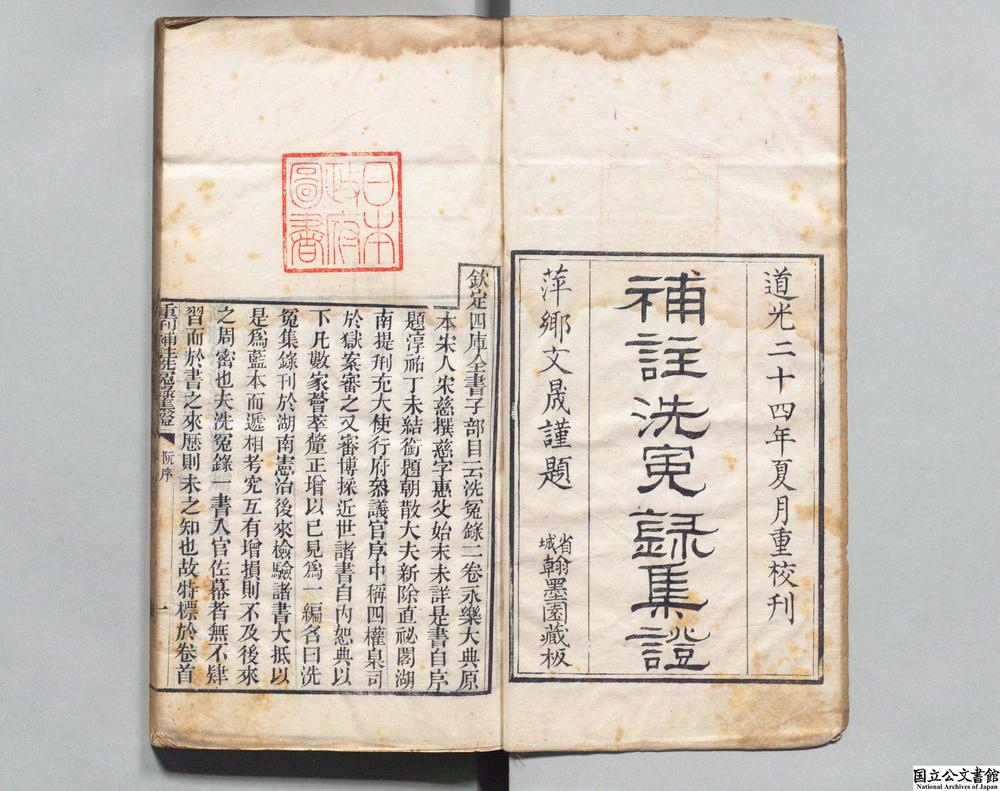 道光二十四年夏月重校刊
補註洗冤錄集證
萍鄉文晟謹題
省城翰墨園藏板
日本
政府
圖書
欽定四庫全書子部目云洗冤錄二卷永樂大典原
本宋人宋慈撰慈字惠父始末未詳是書自序
題淳祐丁未結銜題朝散大夫新除直祕閣湖
南提刑充大使行府參議官序中稱四權臬司
於獄案審之又審博採近世諸書自內恕典以
下凡數家薈萃釐正增以已見爲一編名曰洗
冤集錄刊於湖南憲治後來檢驗諸書大抵以
是爲藍本而遞相考究互有增損則不及後來
之周密也夫洗冤錄一書入官佐幕者無不肄
習而於書之來歷則未之知也故特標於卷首
重刊補註洗冤錄集證
阮序
一
国立公文書館
National Archives of Japan